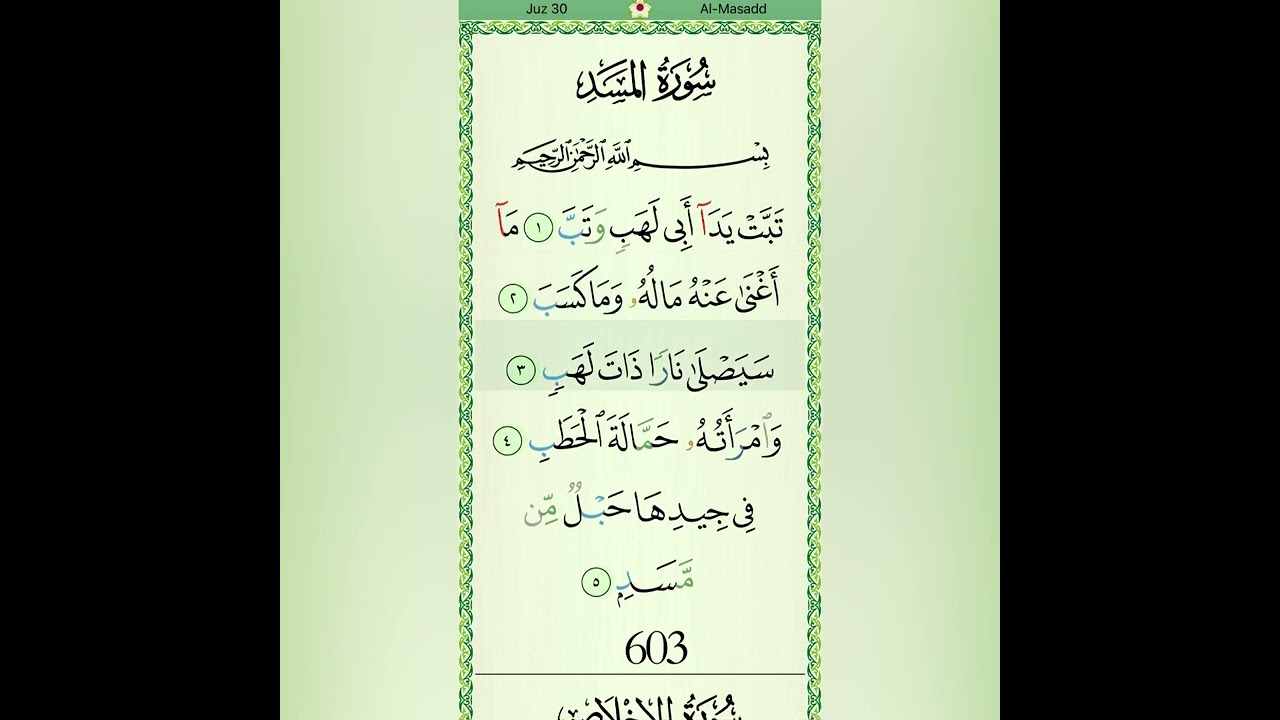 Juz 30 Al-Masadd
سُورَةُ المَسَدِ
بِسْمِ ٱللَّهِ ٱلرَّحْمَٰنِ ٱلرَّحِيمِ
تَبَّتْ يَدَآ أَبِى لَهَبٍ وَتَبَّ ١ مَآ
أَغْنَىٰ عَنْهُ مَالُهُۥ وَمَا كَسَبَ ٢
سَيَصْلَىٰ نَارًا ذَاتَ لَهَبٍ ٣
وَٱمْرَأَتُهُۥ حَمَّالَةَ ٱلْحَطَبِ ٤
فِى جِيدِهَا حَبْلٌ مِّن
مَّسَدٍۭ ٥
603
سُورَةُ الإِخْلَاصِ